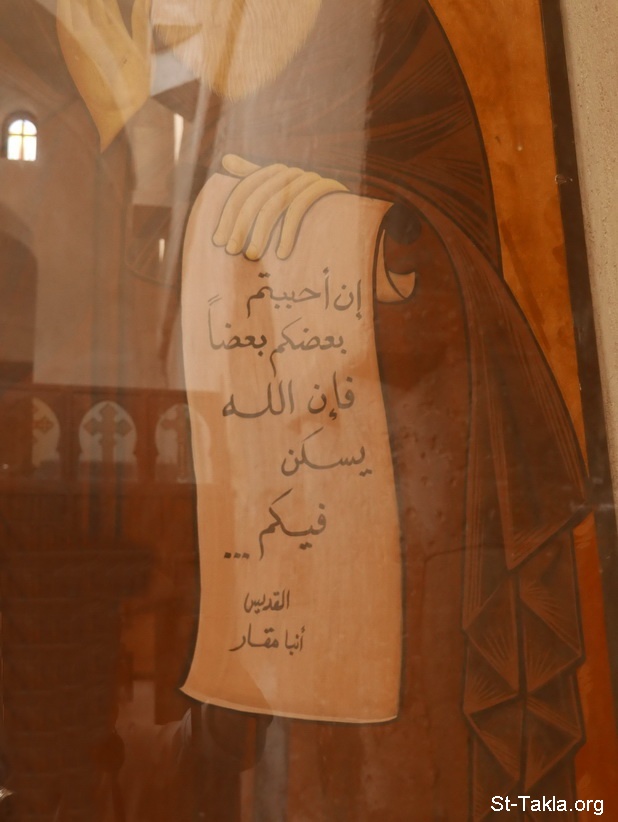 إن أحببتم
بعضكم بعضاً
فإن الله
يسكن
فيكم ...
القديس
أنبا مقار
St-Takla.org